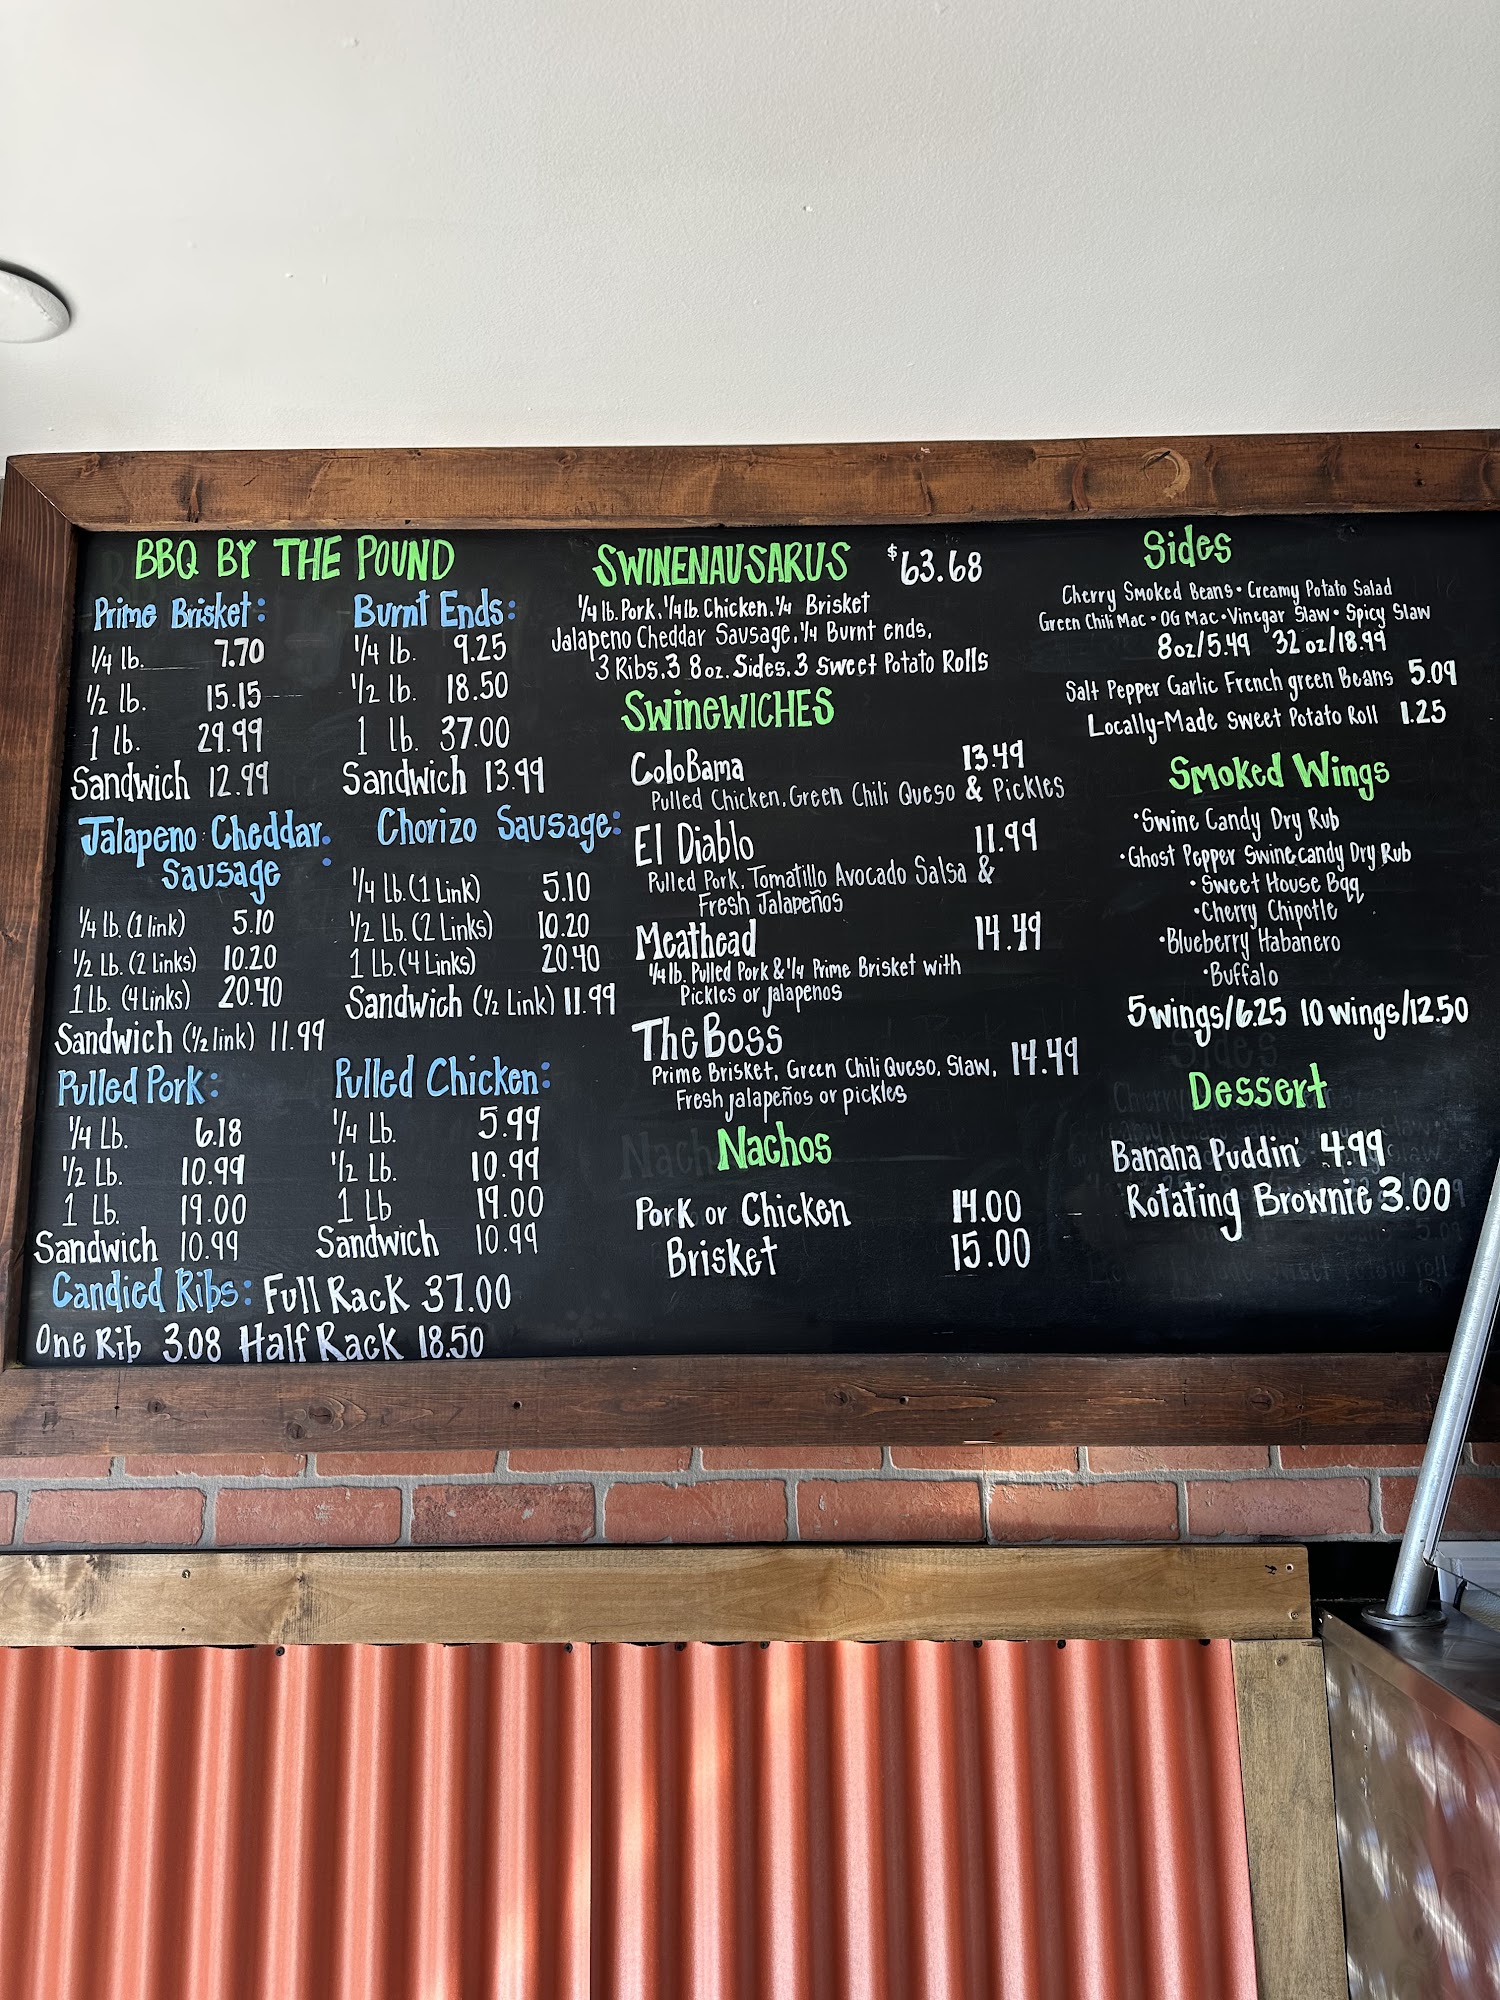 BBQ BY THE POUND
Prime Brisket:
1/4 lb. 7.70
1/2 lb. 15.15
1 lb. 29.99
Sandwich 12.99
Burnt Ends:
1/4 lb. 9.25
1/2 lb. 18.50
1 lb. 37.00
Sandwich 13.99
Jalapeno Cheddar
Sausage :
1/4 lb. (1 link) 5.10
1/2 Lb. (2 Links) 10.20
1 Lb. (4 Links) 20.40
Sandwich (1/2 link) 11.99
Chorizo Sausage:
1/4 Lb. (1 Link) 5.10
1/2 Lb. (2 Links) 10.20
1 Lb. (4 Links) 20.40
Sandwich (1/2 Link) 11.99
Pulled Pork:
1/4 Lb. 6.18
1/2 Lb. 10.99
1 Lb. 19.00
Sandwich 10.99
Pulled Chicken:
1/4 Lb. 5.99
1/2 Lb. 10.99
1 Lb 19.00
Sandwich 10.99
Candied Ribs: Full Rack 37.00
One Rib 3.08 Half Rack 18.50
SWINENAUSARUS $63.68
1/4 lb. Pork, 1/4 lb. Chicken, 1/4 Brisket
Jalapeno Cheddar Sausage, 1/4 Burnt ends,
3 Ribs, 3 8oz. Sides, 3 sweet Potato Rolls
SWineWICHES
ColoBama 13.49
Pulled Chicken, Green Chili Queso & Pickles
El Diablo 11.99
Pulled Pork, Tomatillo Avocado Salsa &
Fresh Jalapeños
Meathead 14.49
1/4 lb. Pulled Pork & 1/4 Prime Brisket with
Pickles or jalapenos
The Boss
Prime Brisket, Green Chili Queso, Slaw, 14.49
Fresh jalapeños or pickles
Nachos
Pork or Chicken 14.00
Brisket 15.00
Sides
Cherry Smoked Beans • Creamy Potato Salad
Green Chili Mac • OG Mac • Vinegar Slaw • Spicy Slaw
8oz/5.49 32 oz/18.99
Salt Pepper Garlic French green Beans 5.09
Locally-Made Sweet Potato Roll 1.25
Smoked Wings
•Swine Candy Dry Rub
•Ghost Pepper Swinecandy Dry Rub
•Sweet House Bqq
•Cherry Chipotle
•Blueberry Habanero
•Buffalo
5 wings/6.25 10 wings/12.50
Dessert
Banana Puddin' 4.99
Rotating Brownie 3.00